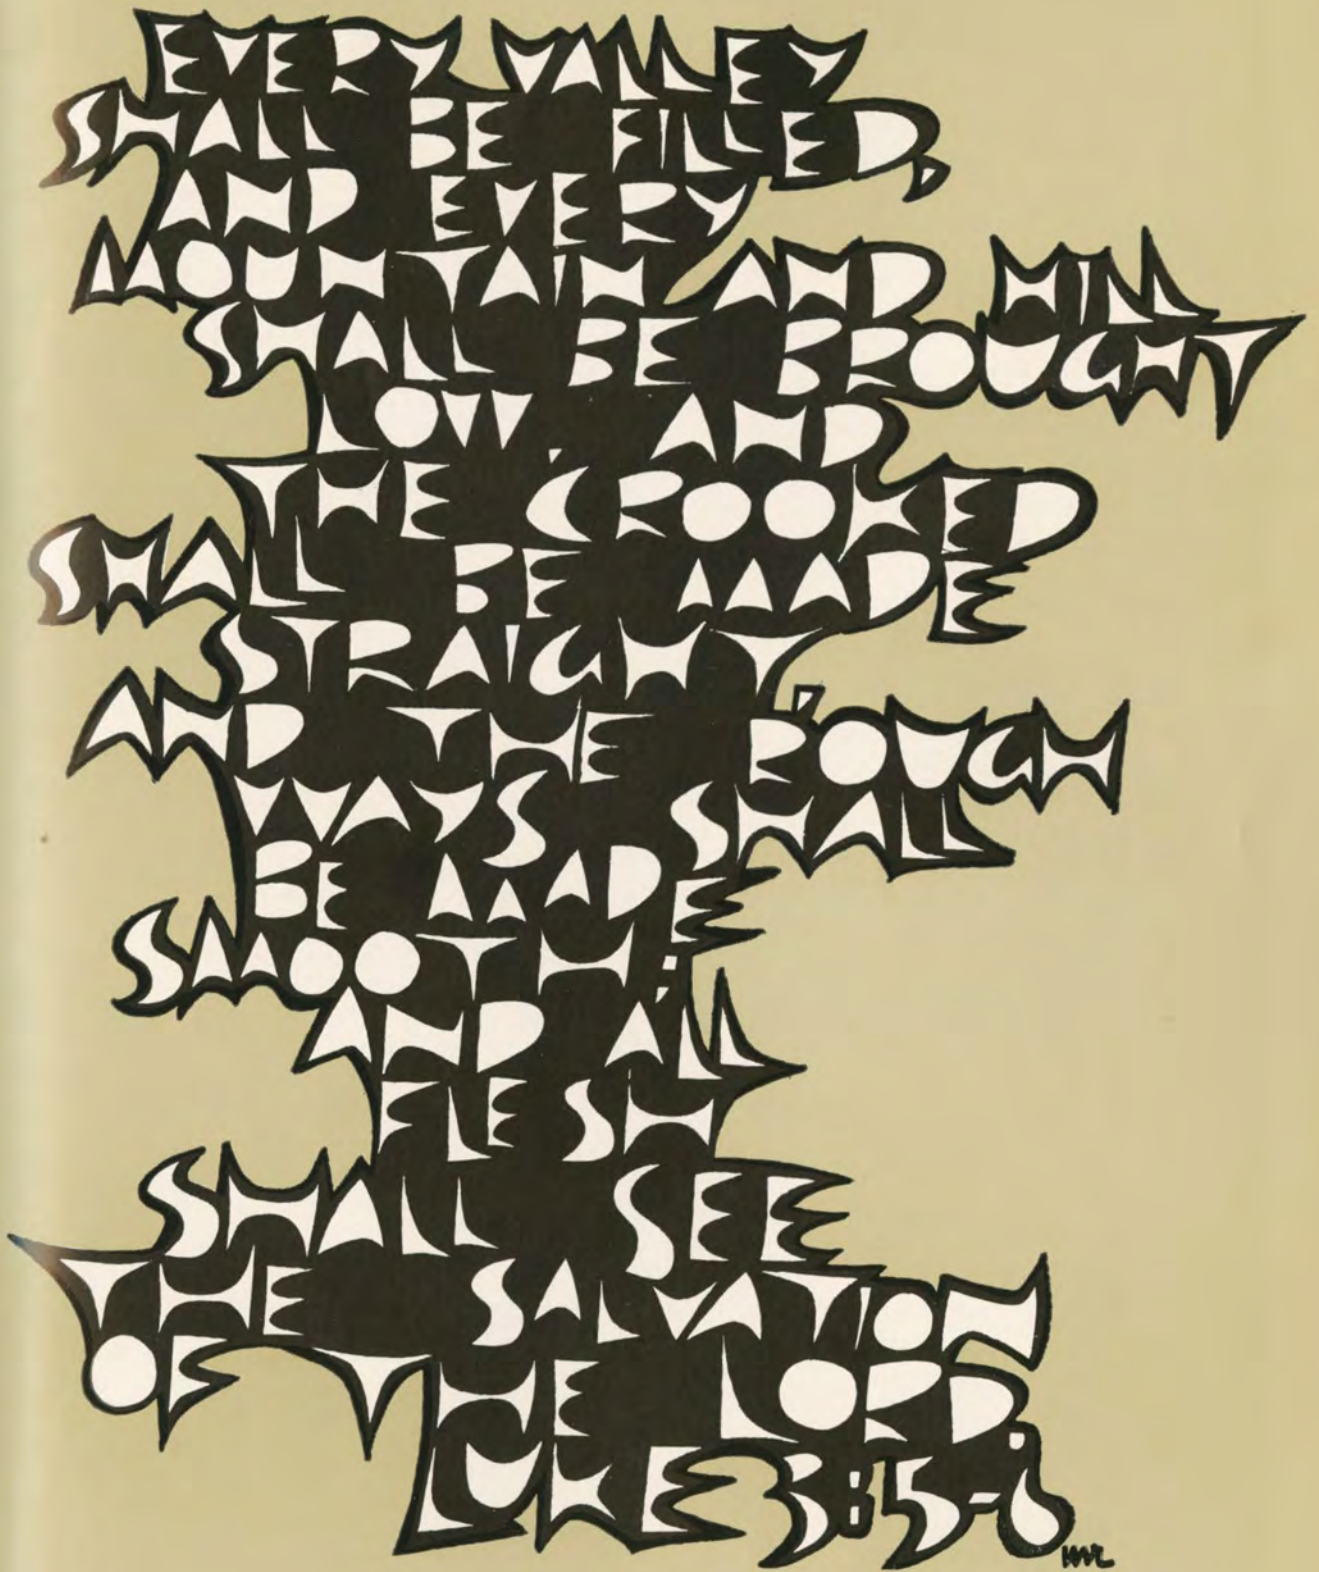 EVERY VALLEY
SHALL BE FILLED,
AND EVERY
MOUNTAIN AND HILL
SHALL BE BROUGHT
LOW, AND
THE CROOKED
SHALL BE MADE
STRAIGHT,
AND THE ROUGH
WAYS SHALL
BE MADE
SMOOTH;
AND ALL
FLESH
SHALL SEE
THE SALVATION
OF THE LORD.
LUKE 3:5-6